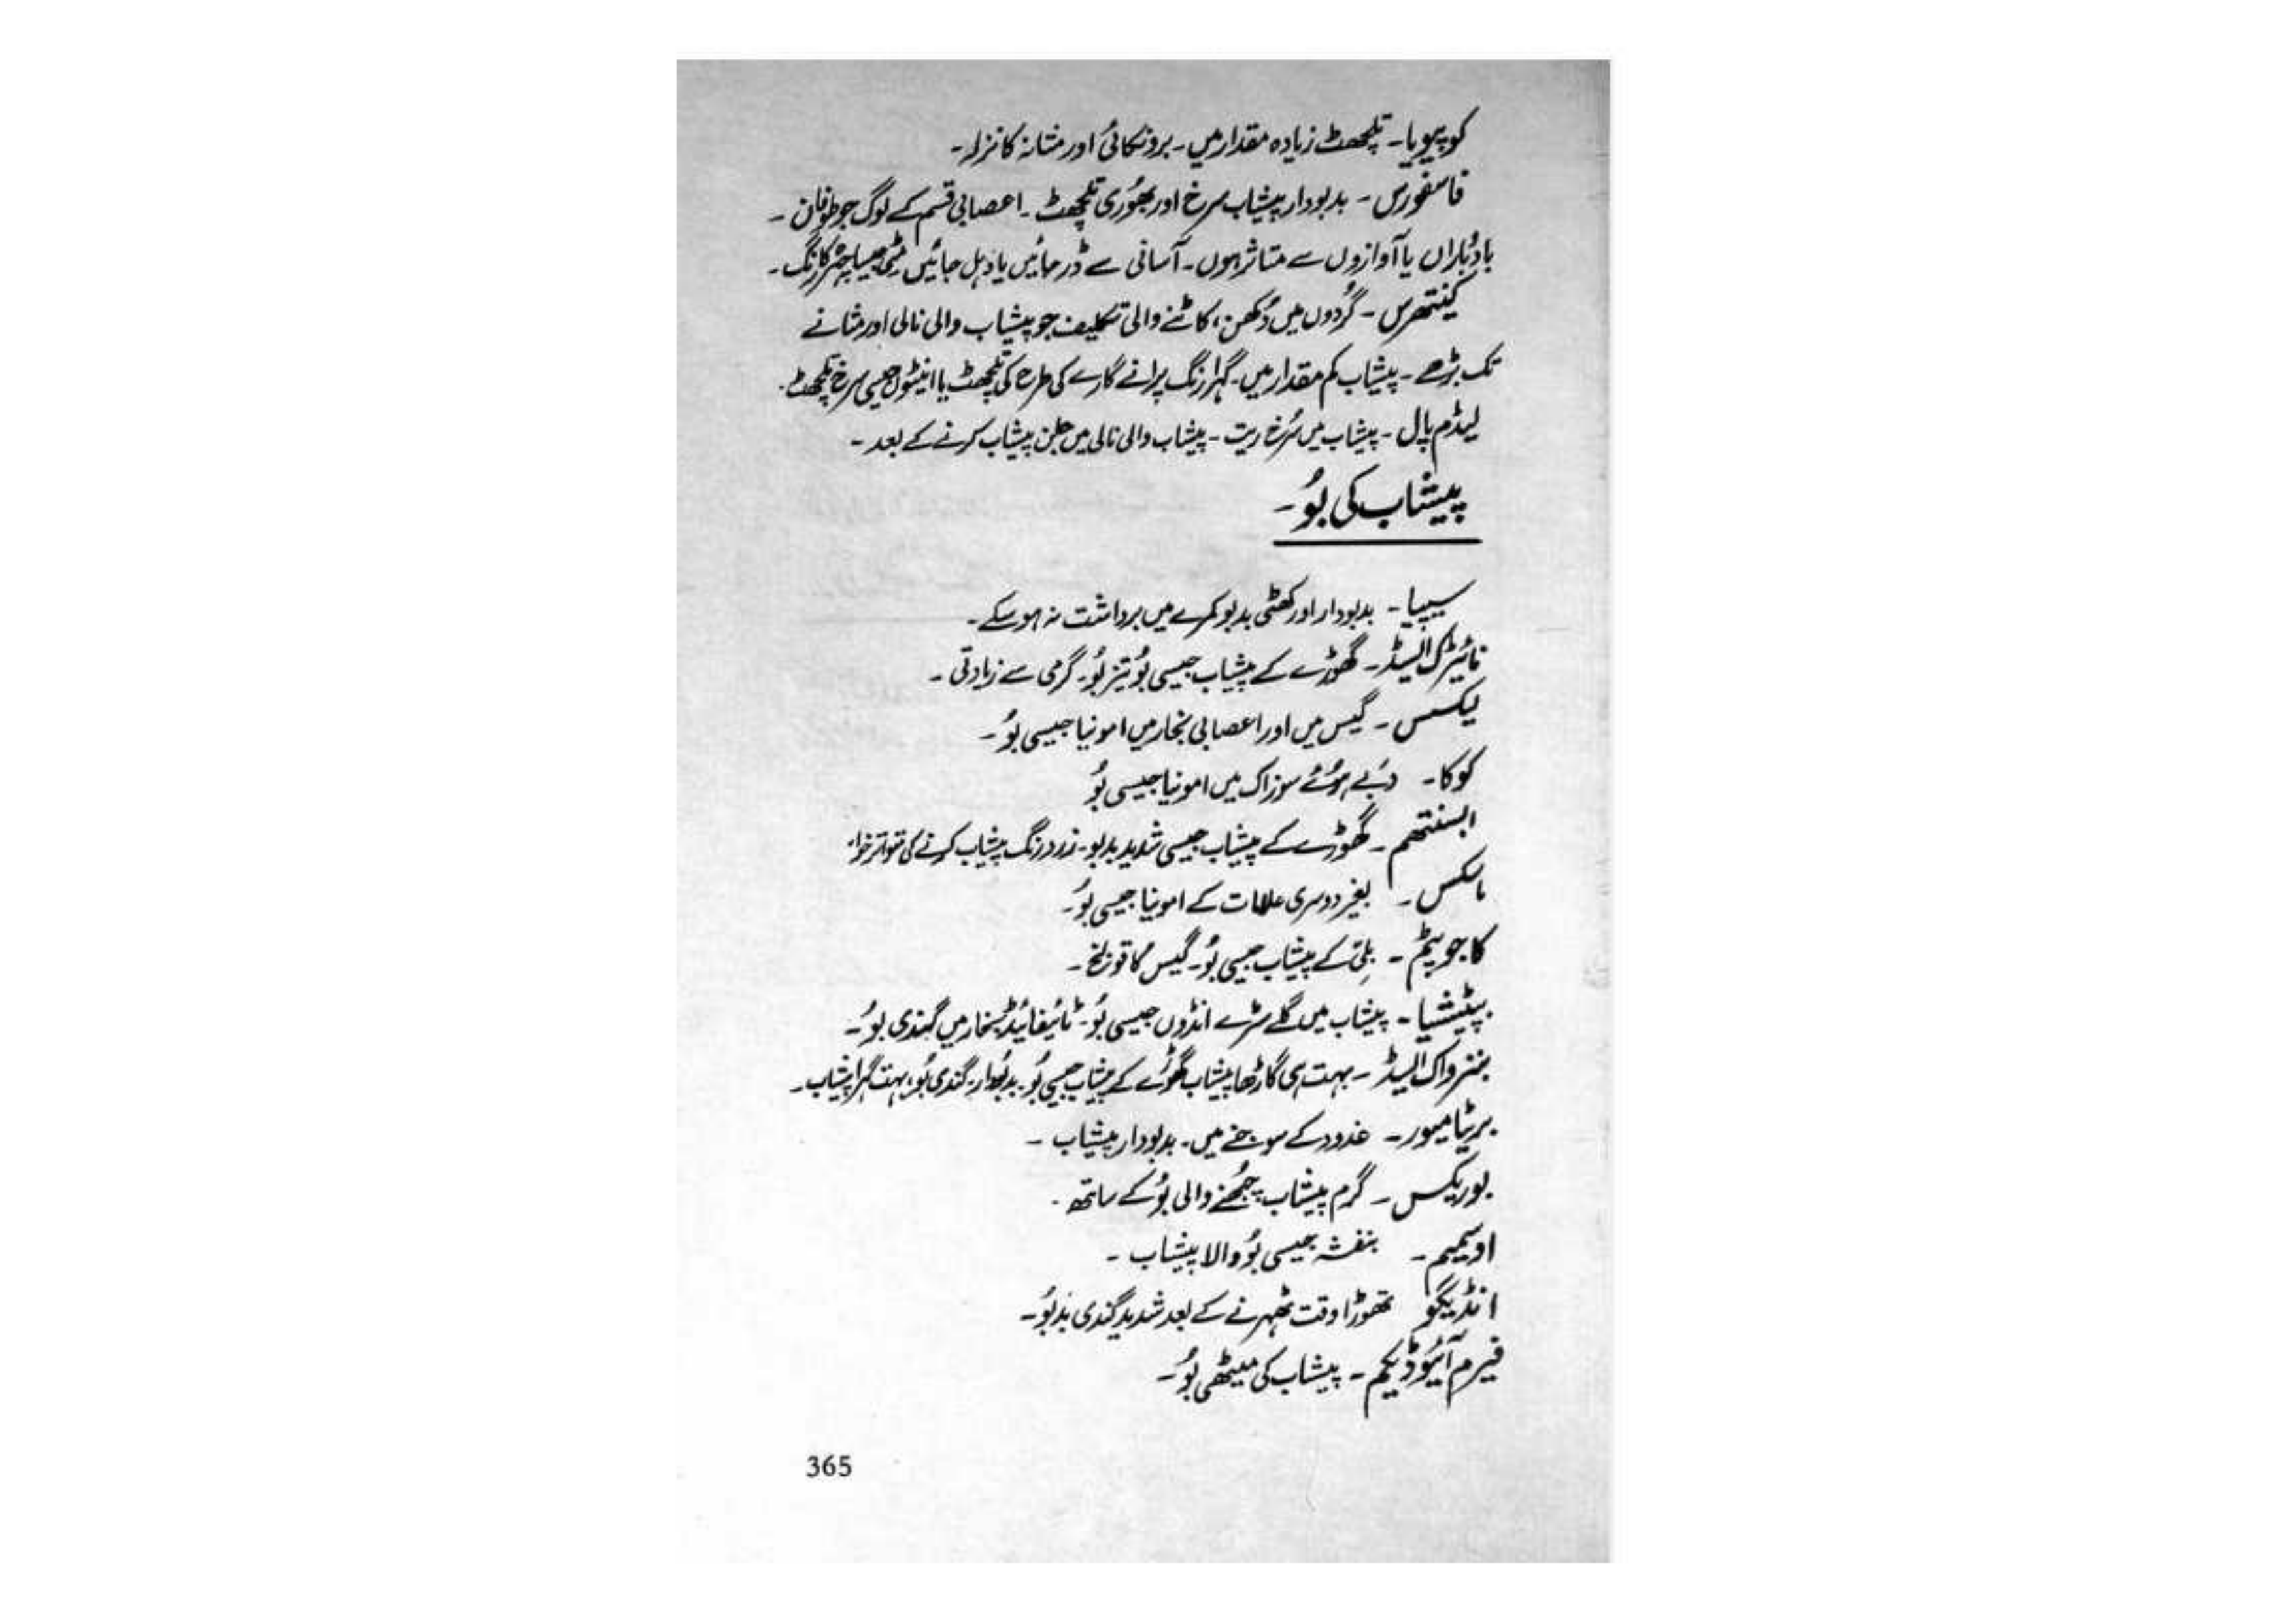 کوپیویا۔ تلچھٹ زیادہ مقدار میں۔ برونکائی اور مثانہ کا نزلہ۔
فاسفورس۔ بدبودار پیشاب سرخ اور بھوری تلچھٹ۔ اعصابی قسم کے لوگ جو طوفان۔
بادوباراں یا آوازوں سے متاثر ہوں۔ آسانی سے ڈر جائیں یا دہل جائیں مٹی جیسا چہرہ کا رنگ۔
کینتھرس۔ گردوں میں دُکھن، کاٹنے والی تکلیف جو پیشاب والی نالی اور مثانے
تک بڑھے۔ پیشاب کم مقدار میں۔ گہرا رنگ پرانے گارے کی طرح کی تلچھٹ یا اینٹوں جیسی سرخ تلچھٹ۔
لیڈم پال۔ پیشاب میں سُرخ ریت۔ پیشاب والی نالی میں جلن پیشاب کرنے کے بعد۔
پیشاب کی بُو۔
سیپیا۔ بدبودار اور کھٹی بدبو کمرے میں برداشت نہ ہو سکے۔
نائیٹرک ایسڈ۔ گھوڑے کے پیشاب جیسی بُو تیز بُو۔ گرمی سے زیادتی۔
لیکسس۔ گیس میں اور اعصابی بخار میں امونیا جیسی بُو۔
کوکا۔ دبے ہوئے سوزاک میں امونیا جیسی بُو
ابسنتھم۔ گھوڑے کے پیشاب جیسی شدید بدبو۔ زرد رنگ پیشاب کرنے کی متواتر
ماسکس۔ بغیر دوسری علامات کے امونیا جیسی بُو۔
کاجوپیٹم۔ بلّی کے پیشاب جیسی بُو۔ گیس کا قولنج۔
بپٹیشیا۔ پیشاب میں گلے سڑے انڈوں جیسی بُو۔ ٹائیفائیڈ بخار میں گندی بُو۔
بنزواک ایسڈ۔ بہت ہی گاڑھا پیشاب گھوڑے کے پیشاب جیسی بُو۔ بدبُودار۔ گندی بُو، بہت گہرا پیشاب۔
بریٹامیور۔ غدود کے سوجنے میں۔ بدبودار پیشاب۔
بوریکس۔ گرم پیشاب چبھنے والی بُو کے ساتھ۔
اوسمیم۔ بنفشہ جیسی بُو والا پیشاب۔
انڈیگو تھوڑا وقت ٹھہرنے کے بعد شدید گندی بدبُو۔
فیرم آئیوڈیکم۔ پیشاب کی میٹھی بُو۔
365